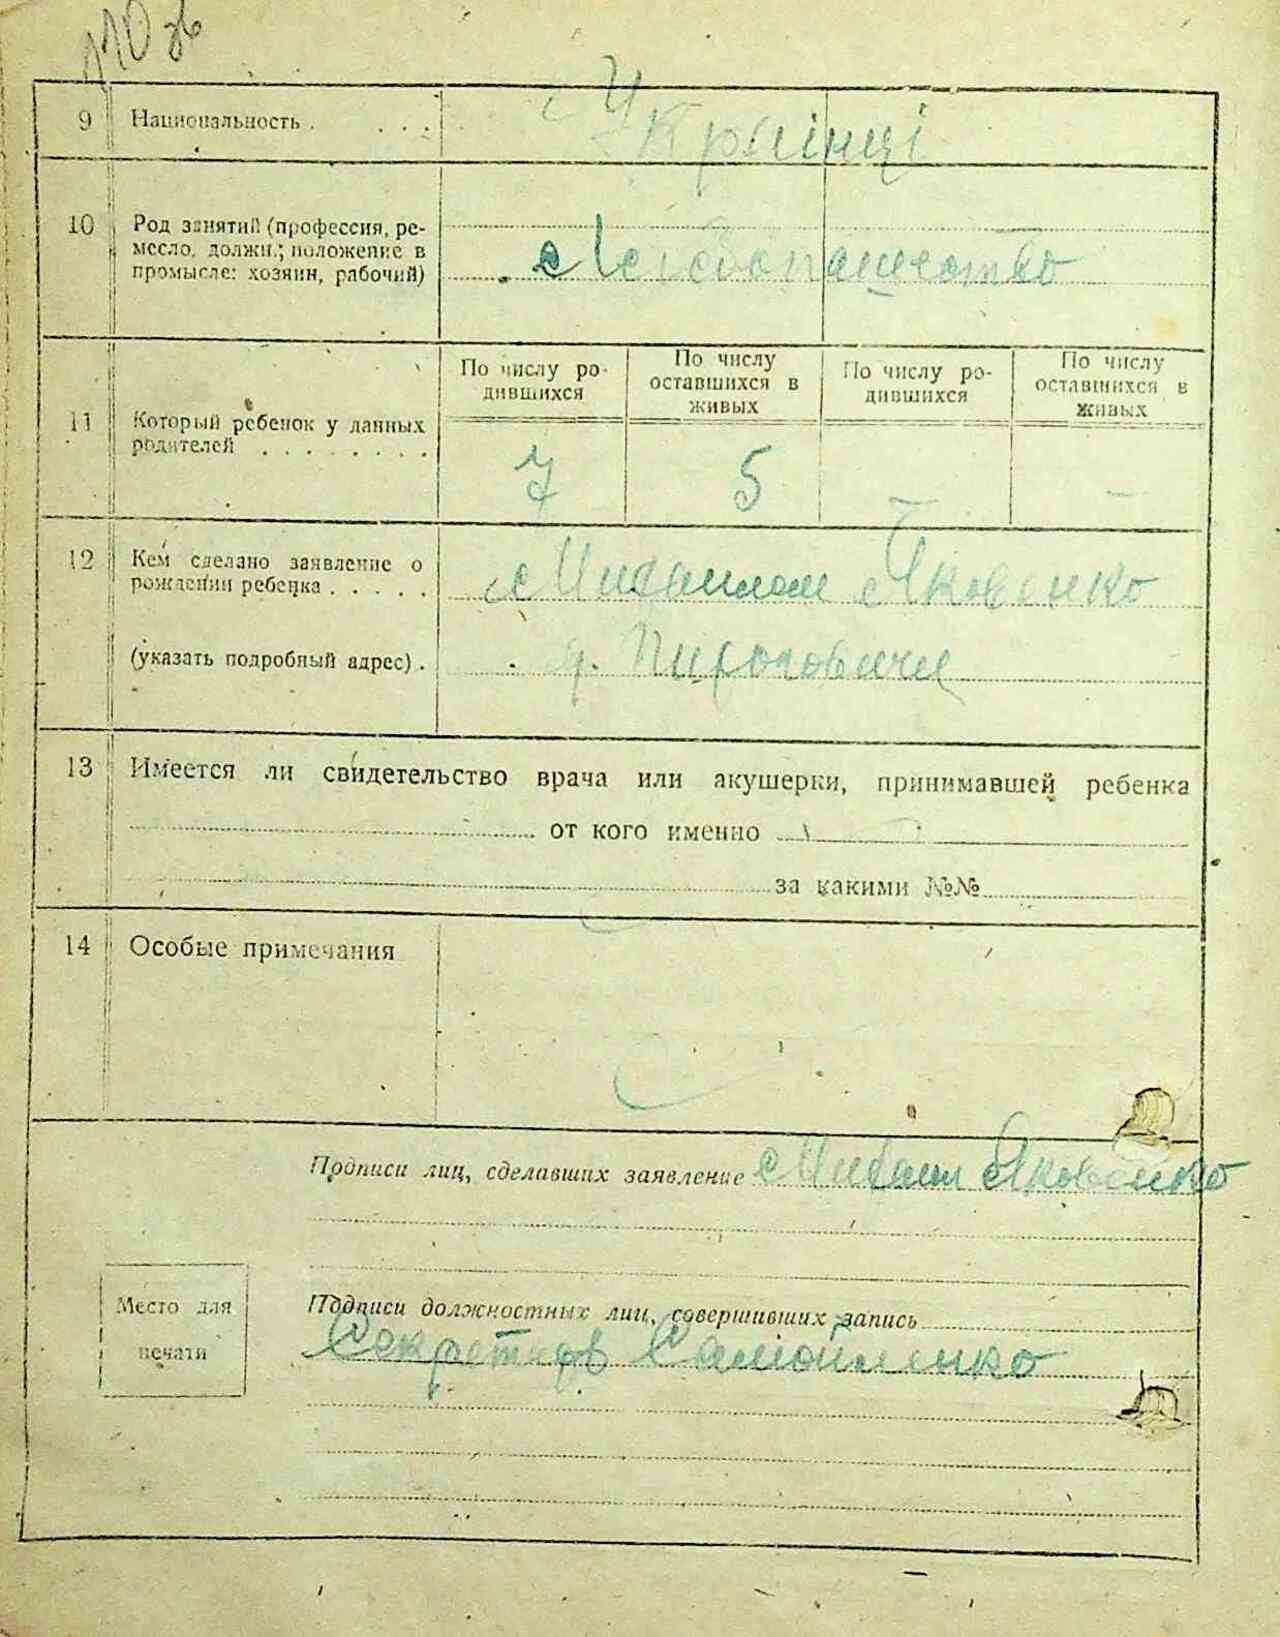 110 зв
9 Национальность . . . . Українці
10 Род занятий (профессия, ре-
месло, должн.; положение в
промысле: хозяин, рабочий)
Хлебопашество
По числу ро-
дившихся
По числу
оставшихся в
живых
По числу ро-
дившихся
По числу
оставшихся в
живых
11 Который ребенок у данных
родителей . . . . . . . .
7 5 — —
12 Кем сделано заявление о
рождении ребенка . . . . .
Михайлом Яковенко
(указать подробный адрес) .
13 Имеется ли свидетельство врача или акушерки, принимавшей ребенка
от кого именно
за какими №№
14 Особые примечания
Подписи лиц, сделавших заявление Михаил Яковенко
Место для
печати
Подписи должностных лиц, совершивших запись
Секретарь Самойленко